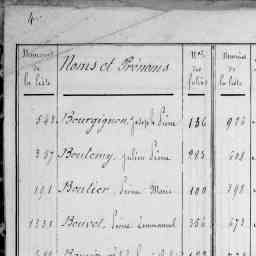 4
Numéros de la liste
Noms et Prénoms
Nos des folios
Numéros de la liste
548 Bourgignon, Joseph Pierre 136 926
367 Boutemy, Julien Pierre 293 608
191 Boutier, Pierre Marie 100 398
1331 Bouvot, Pierre Emmanuel 356 673